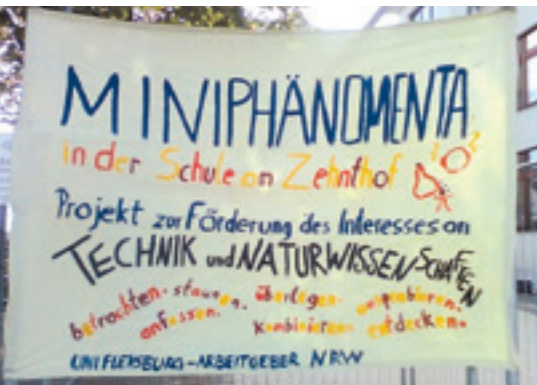 MINIPHÄNOMENTA
in der Schule am Zehnthof
Projekt zur Förderung des Interesses an
TECHNIK und NATURWISSENSCHAFTEN
betrachten - staunen. überlegen - ausprobieren.
anfassen. kombinieren entdecken.
UNI FLENSBURG - ARBEITGEBER NRW